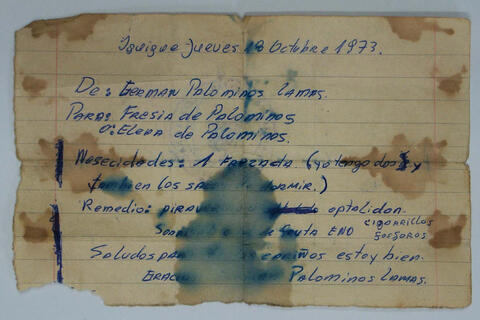 Iquique Jueves 18 Octubre 1973.
De: GERMAN Palominos Lamas.
Para: Fresia de Palominos
o: Elena de Palominos.
Nesecidades: 1 Frazada (yo tengo dos) y
tambien los sac dormir.)
Remedio: optalidon
Fruta ENO cigarrillos
fosforos
Saludos para cariños estoy bien.
Graci Palominos Lamas.